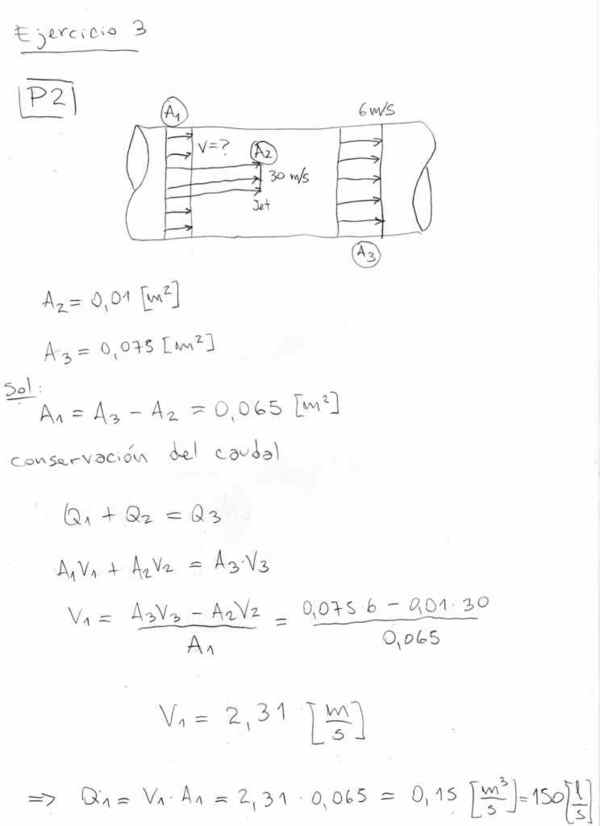 Ejercicio 3
P2
A₁ 6 m/s
V=? A₂
30 m/s
Jet
A₃
A₂ = 0,01 [m²]
A₃ = 0,075 [m²]
Sol:
A₁ = A₃ - A₂ = 0,065 [m²]
conservación del caudal
Q₁ + Q₂ = Q₃
A₁V₁ + A₂V₂ = A₃·V₃
V₁ = (A₃V₃ - A₂V₂) / A₁ = (0,075 6 - 0,01·30) / 0,065
V₁ = 2,31 [m/s]
⇒ Q₁ = V₁·A₁ = 2,31·0,065 = 0,15 [m³/s] = 150 [l/s]